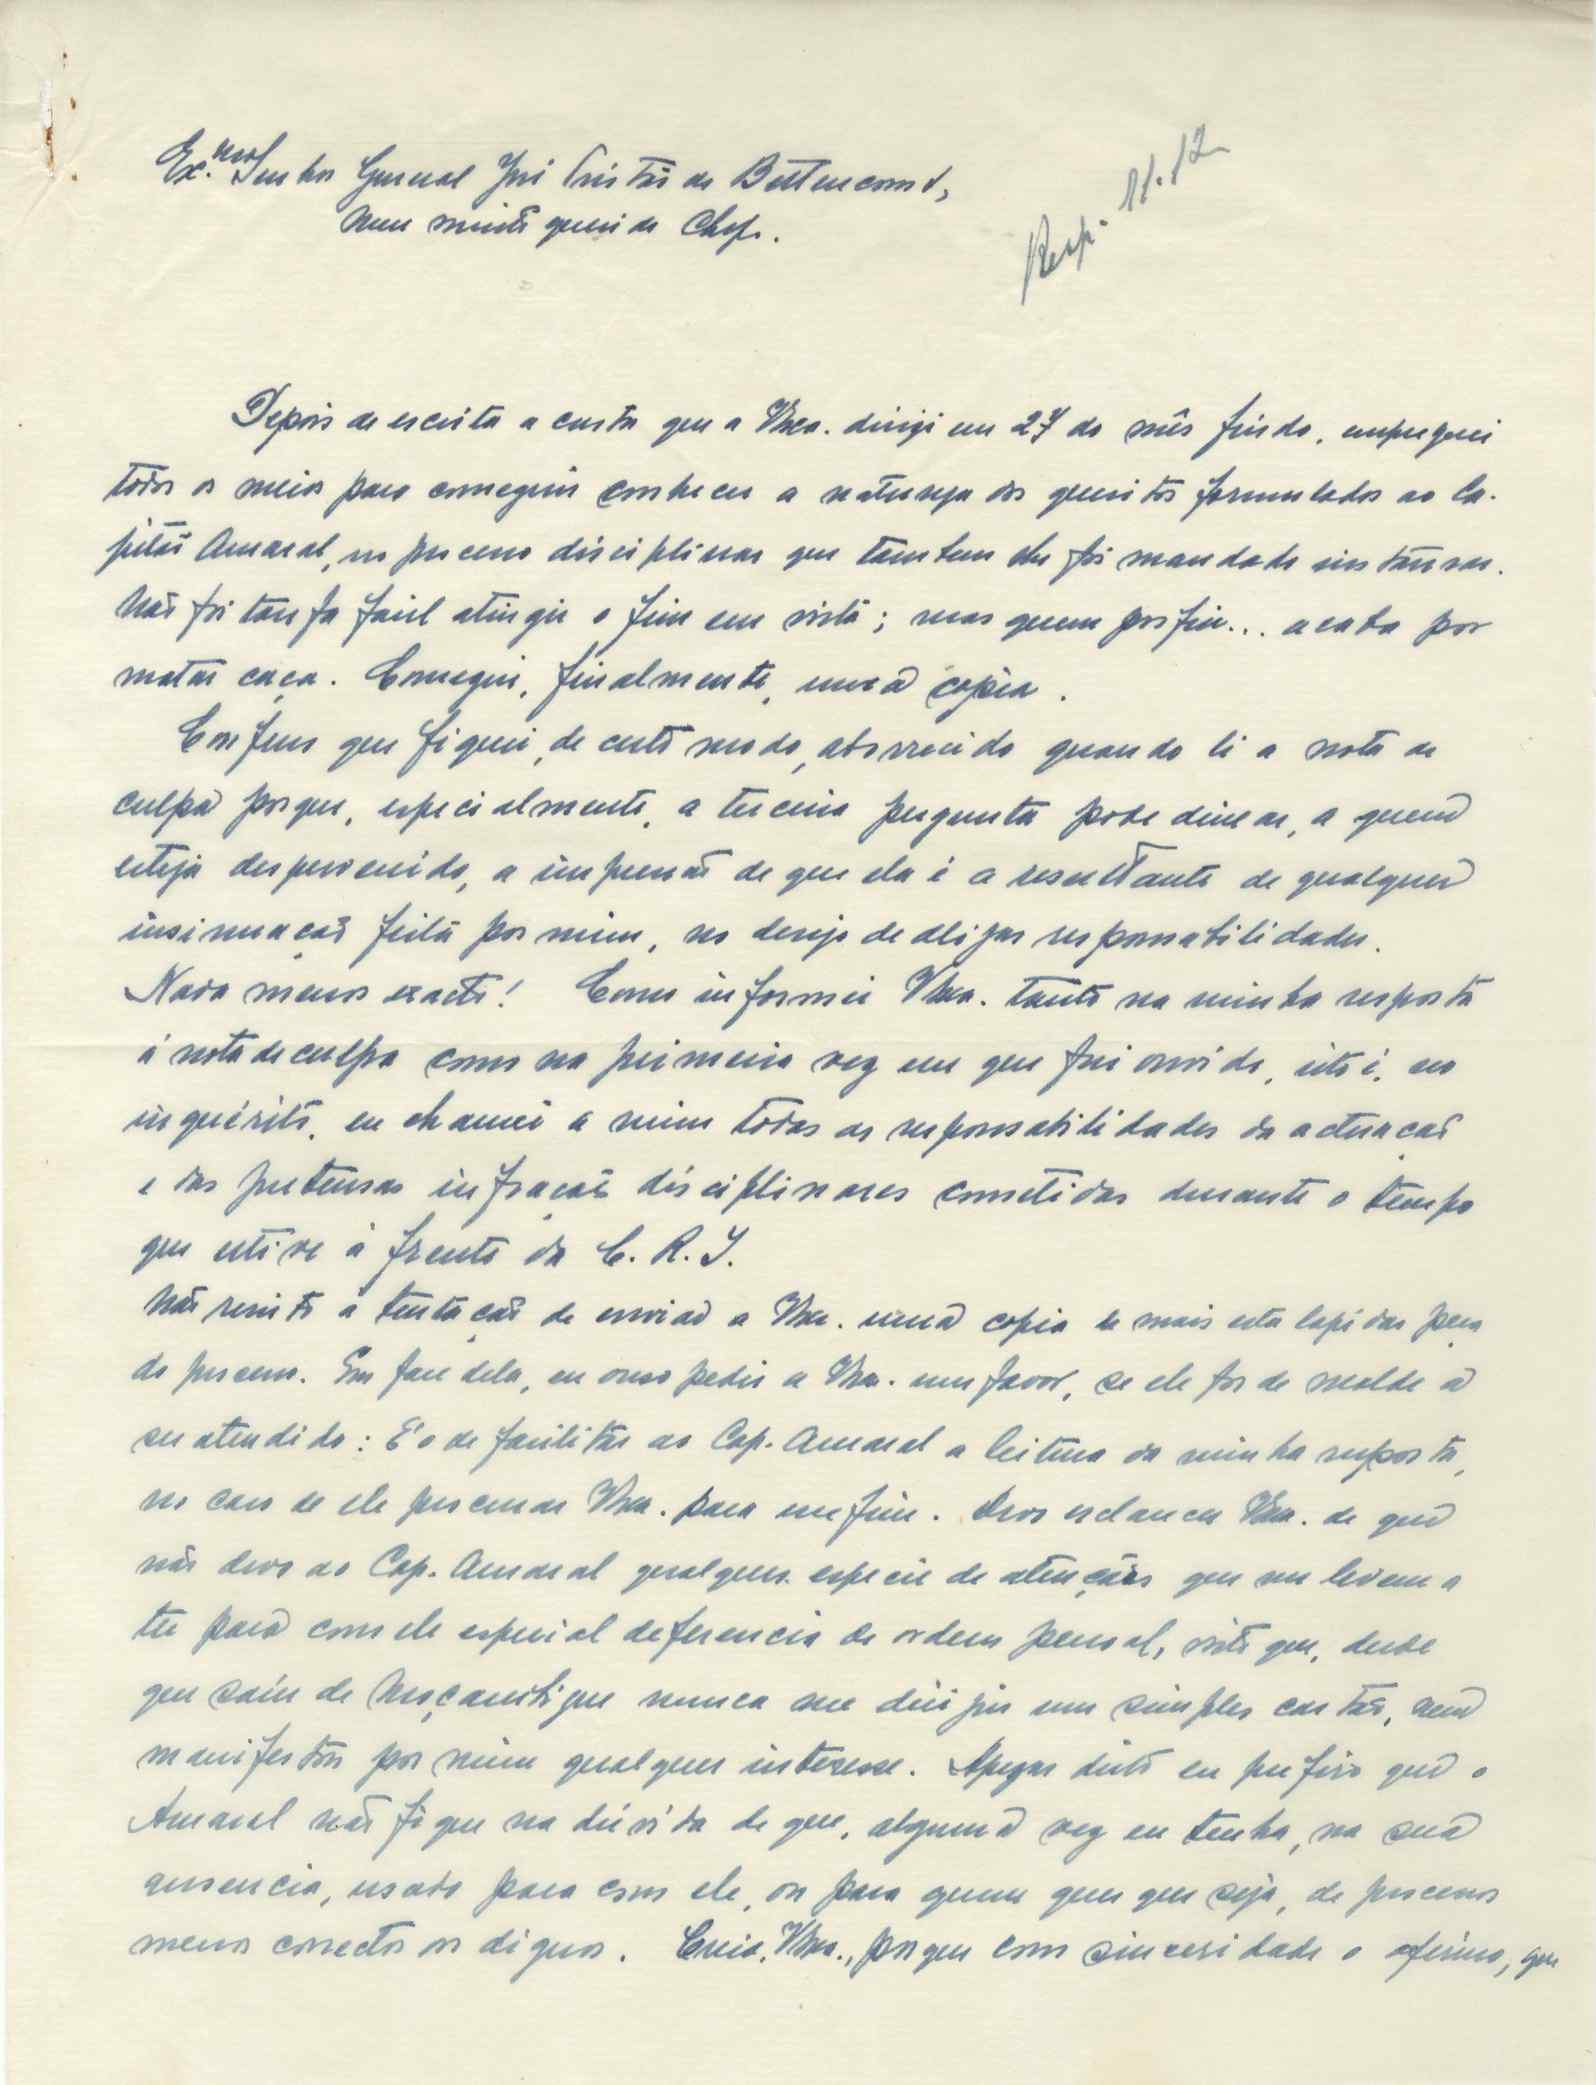 Ex.mo Senhor General José Tristão de Bettencourt,
Meu muito querido Chefe.
Resp. 11.12
Depois de escrita a carta que a V.Exa. dirigi em 27 do mês findo, empreguei
todos os meios para conseguir conhecer a natureza dos quesitos formulados ao Ca-
pitão Amaral, no processo disciplinar que tambem lhe foi mandado instaurar.
Não foi tarefa facil atingir o fim em vista; mas quem porfia... acaba por
matar caça. Consegui, finalmente, uma copia.
Confesso que fiquei, de certo modo, aborrecido quando li a nota de
culpa porque, especialmente, a terceira pergunta pode deixar, a quem
esteja desprevenido, a impressão de que ela é a resultante de qualquer
insinuação feita por mim, no desejo de alijar responsabilidades.
Nada menos exacto! Como informei V.Exa. tanto na minha resposta
á nota de culpa como na primeira vez em que fui ouvido, isto é, no
inquérito, eu chamei a mim todas as responsabilidades da actuação
e das pretensas infracções disciplinares cometidas durante o tempo
que estive á frente da C. R. I.
Não resisto á tentação de enviar a V.Exa. uma copia de mais esta lapidar peça
do processo. Em face dela, eu ouso pedir a V.Exa. um favor, se ele for de molde a
ser atendido: É o de facilitar ao Cap. Amaral a leitura da minha resposta,
no caso de ele procurar V.Exa. para esse fim. Devo esclarecer V.Exa. de que
não devo ao Cap. Amaral qualquer especie de atenções que me levem a
ter para com ele especial deferencia de ordem pessoal, visto que, desde
que saíu de Moçambique nunca me dirigiu um simples cartão, nem
manifestou por mim qualquer interesse. Apezar disto eu prefiro que o
Amaral não fique na dúvida de que, alguma vez eu tenha, na sua
ausencia, usado para com ele, ou para quem quer que seja, de processos
menos correctos ou dignos. Creia V.Exa., porque com sinceridade o afirmo, que